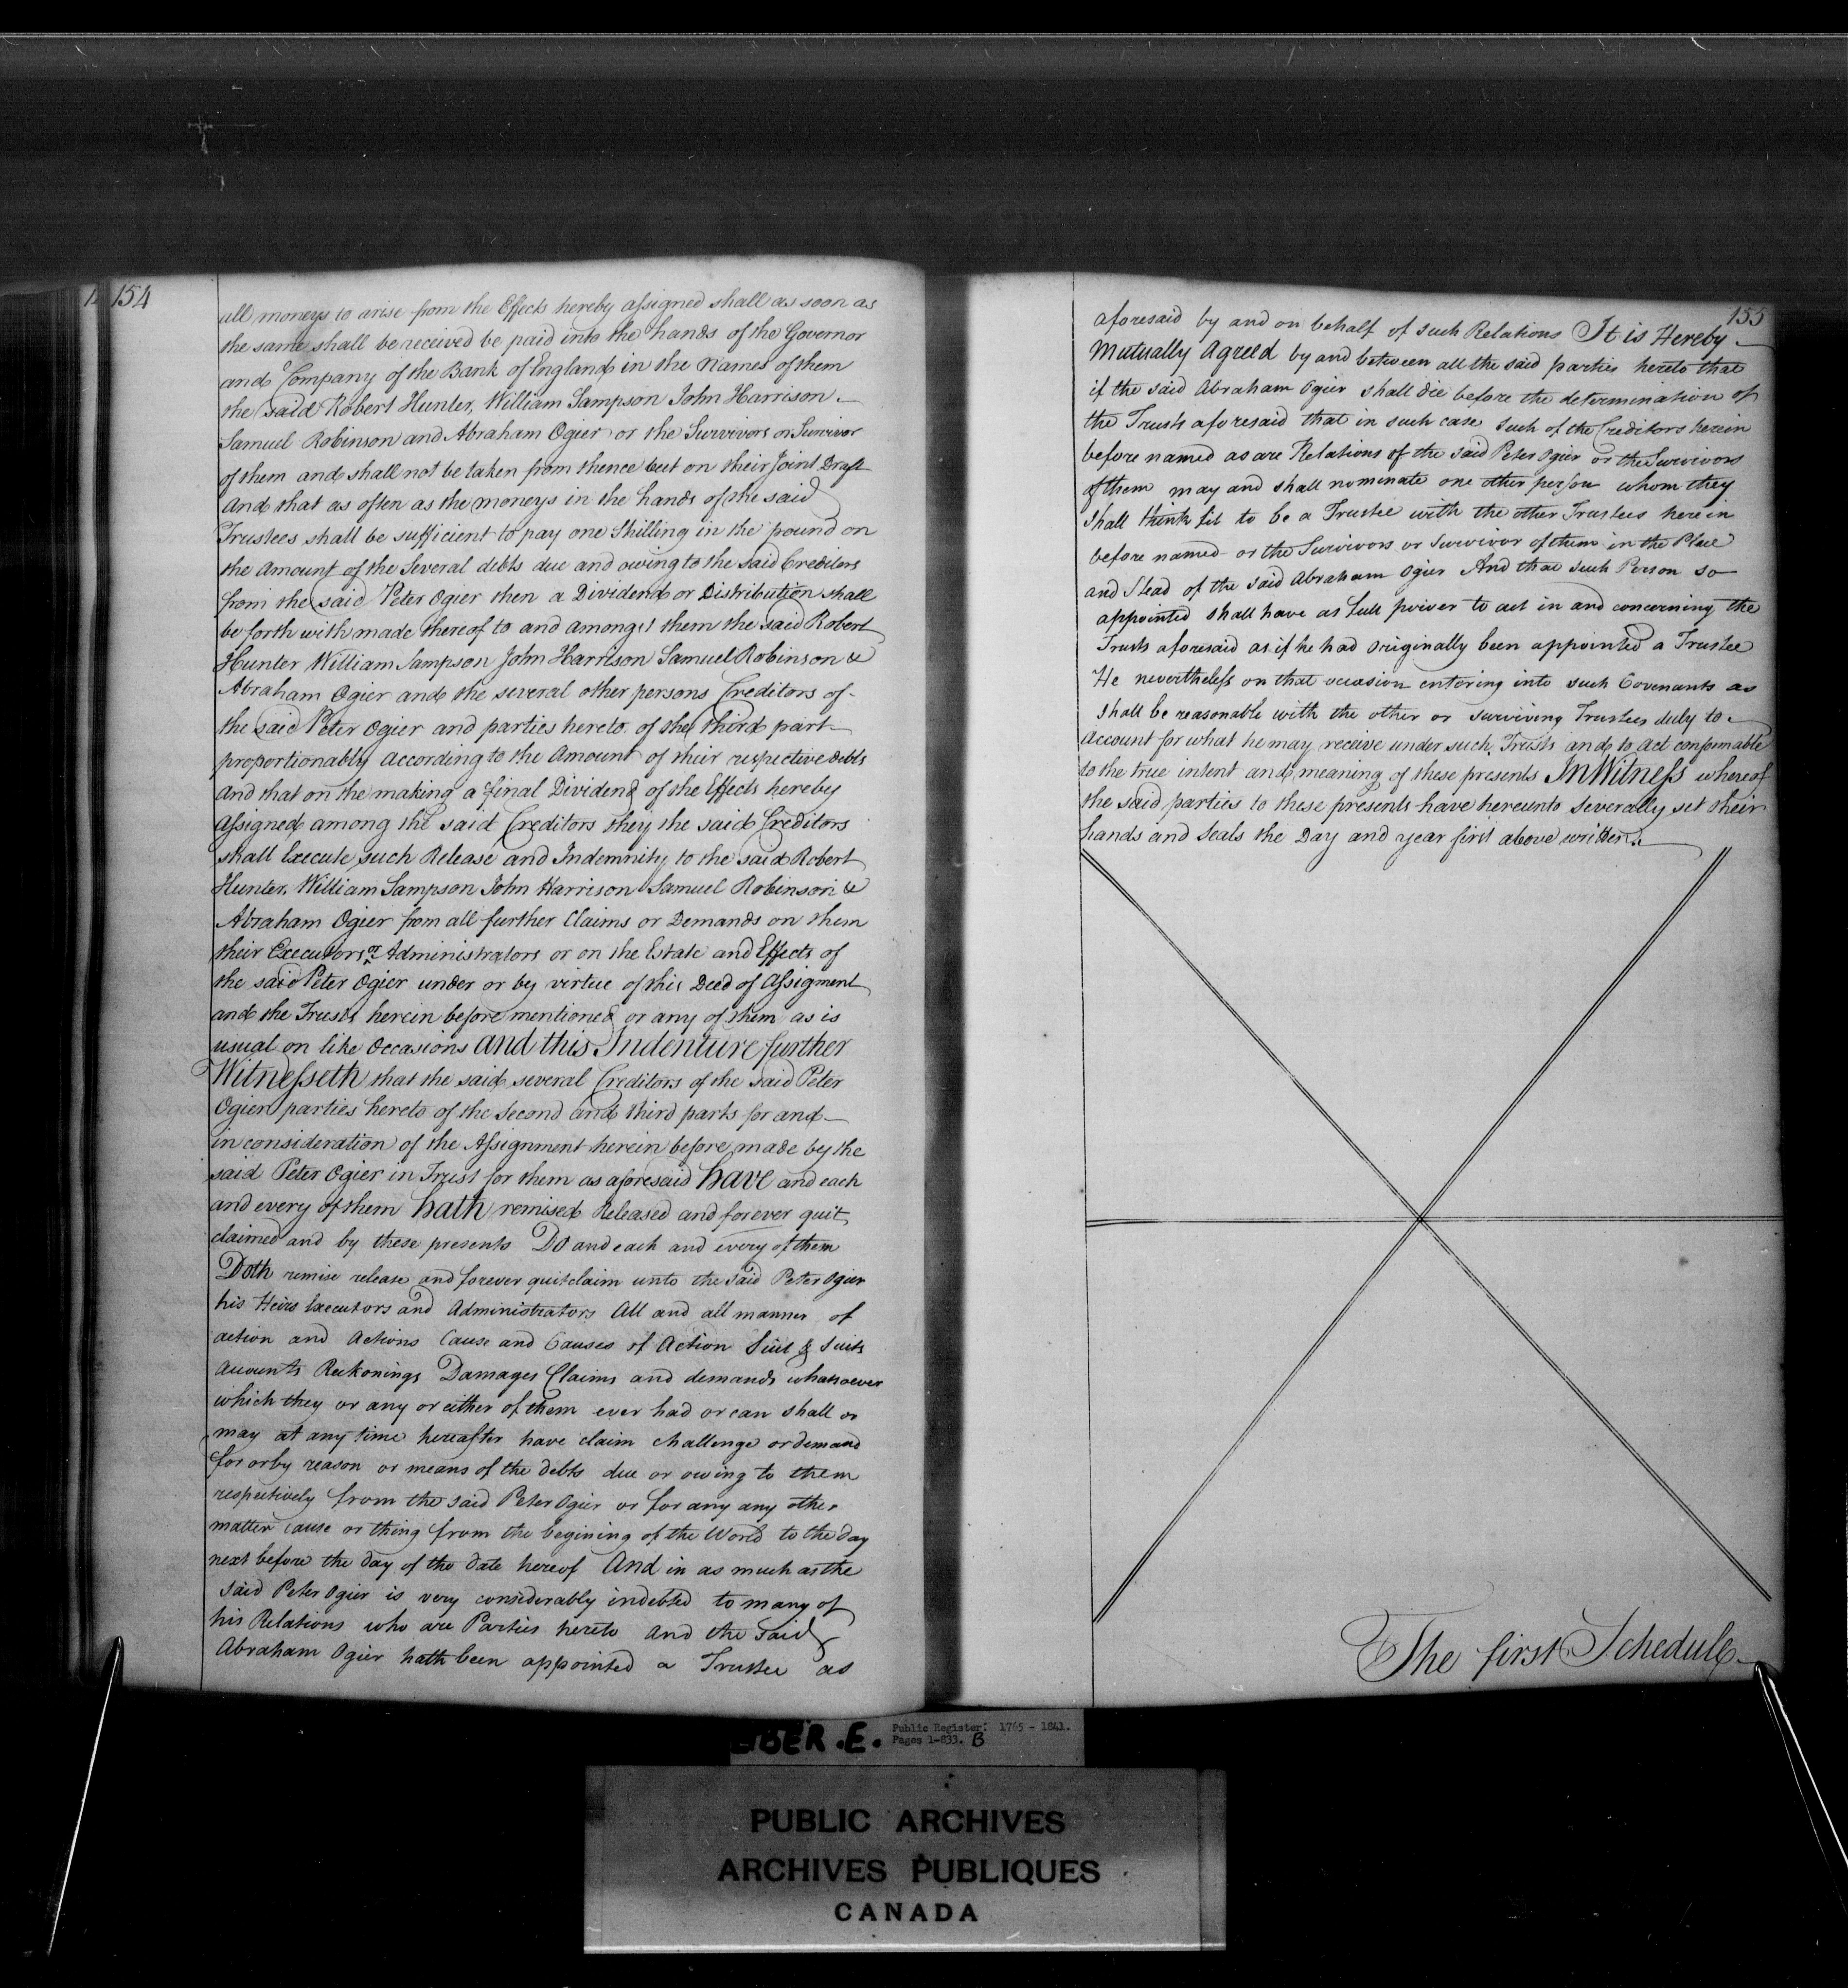 154
all moneys to arise from the Effects hereby assigned shall as soon as
the same shall be received be paid into the hands of the Governor
and Company of the Bank of England in the Names of them
the said Robert Hunter, William Sampson John Harrison
Samuel Robinson and Abraham Ogier or the Survivors or Survivor
of them and shall not be taken from thence but on their Joint Draft
And that as often as the moneys in the hands of the said
Trustees shall be sufficient to pay one Shilling in the pound on
the Amount of the Several debts due and owing to the said Creditors
from the said Peter Ogier then a Dividend or Distribution shall
be forth with made thereof to and amongst them the said Robert
Hunter William Sampson John Harrison Samuel Robinson &
Abraham Ogier and the several other persons Creditors of
the said Peter Ogier and parties hereto of the third part
proportionably according to the Amount of their respective debts
And that on the making a final Dividend of the Effects hereby
assigned among the said Creditors they the said Creditors
shall Execute such Release and Indemnity to the said Robert
Hunter, William Sampson John Harrison Samuel Robinson &
Abraham Ogier from all further Claims or Demands on them
their Executors or Administrators or on the Estate and Effects of
the said Peter Ogier under or by virtue of this Deed of Assigment
and the Trusts herein before mentioned or any of them as is
usual on like Occasions and this Indenture further
Witnesseth that the said several Creditors of the said Peter
Ogier parties hereto of the Second and third parts for and
in consideration of the Assignment herein before made by the
said Peter Ogier in Trust for them as aforesaid have and each
and every of them hath remised Released and forever quit
claimed and by these presents Do and each and every of them
Doth remise release and forever quitclaim unto the said Peter Ogier
his Heirs Executors and Administrators All and all manner of
action and Actions Cause and Causes of Action Suit & Suits
Accounts Reckonings Damages Claims and demands whatsoever
which they or any or either of them ever had or can shall or
may at any time hereafter have claim challenge or demand
for or by reason or means of the debts due or owing to them
respectively from the said Peter Ogier or for any any other
matter cause or thing from the begining of the World to the day
next before the day of the date hereof And in as much as the
said Peter Ogier is very considerably indebted to many of
his Relations who are Parties hereto and the said
Abraham Ogier hath been appointed a Trustee as
155
aforesaid by and on behalf of such Relations It is Hereby
Mutually Agreed by and between all the said parties hereto that
if the said Abraham Ogier shall die before the determination of
the Trusts aforesaid that in such case such of the Creditors herein
before named as are Relations of the said Peter Ogier or the Survivors
of them may and shall nominate one other person whom they
shall think fit to be a Trustee with the other Trustees herein
before named or the Survivors or Survivor of them in the Place
and Stead of the said Abraham Ogier And that such Person so
appointed shall have as full power to act in and concerning the
Trusts aforesaid as if he had originally been appointed a Trustee
He nevertheless on that occasion entering into such Covenants as
shall be reasonable with the other or surviving Trustees duly to
account for what he may receive under such Trusts and to act conformable
to the true intent and meaning of these presents In Witness whereof
the said parties to these presents have hereunto severally set their
hands and Seals the Day and year first above written.
The first Schedule
LIBER .E.
Public Register: 1765 - 1841.
Pages 1-833. B
PUBLIC ARCHIVES
ARCHIVES PUBLIQUES
CANADA